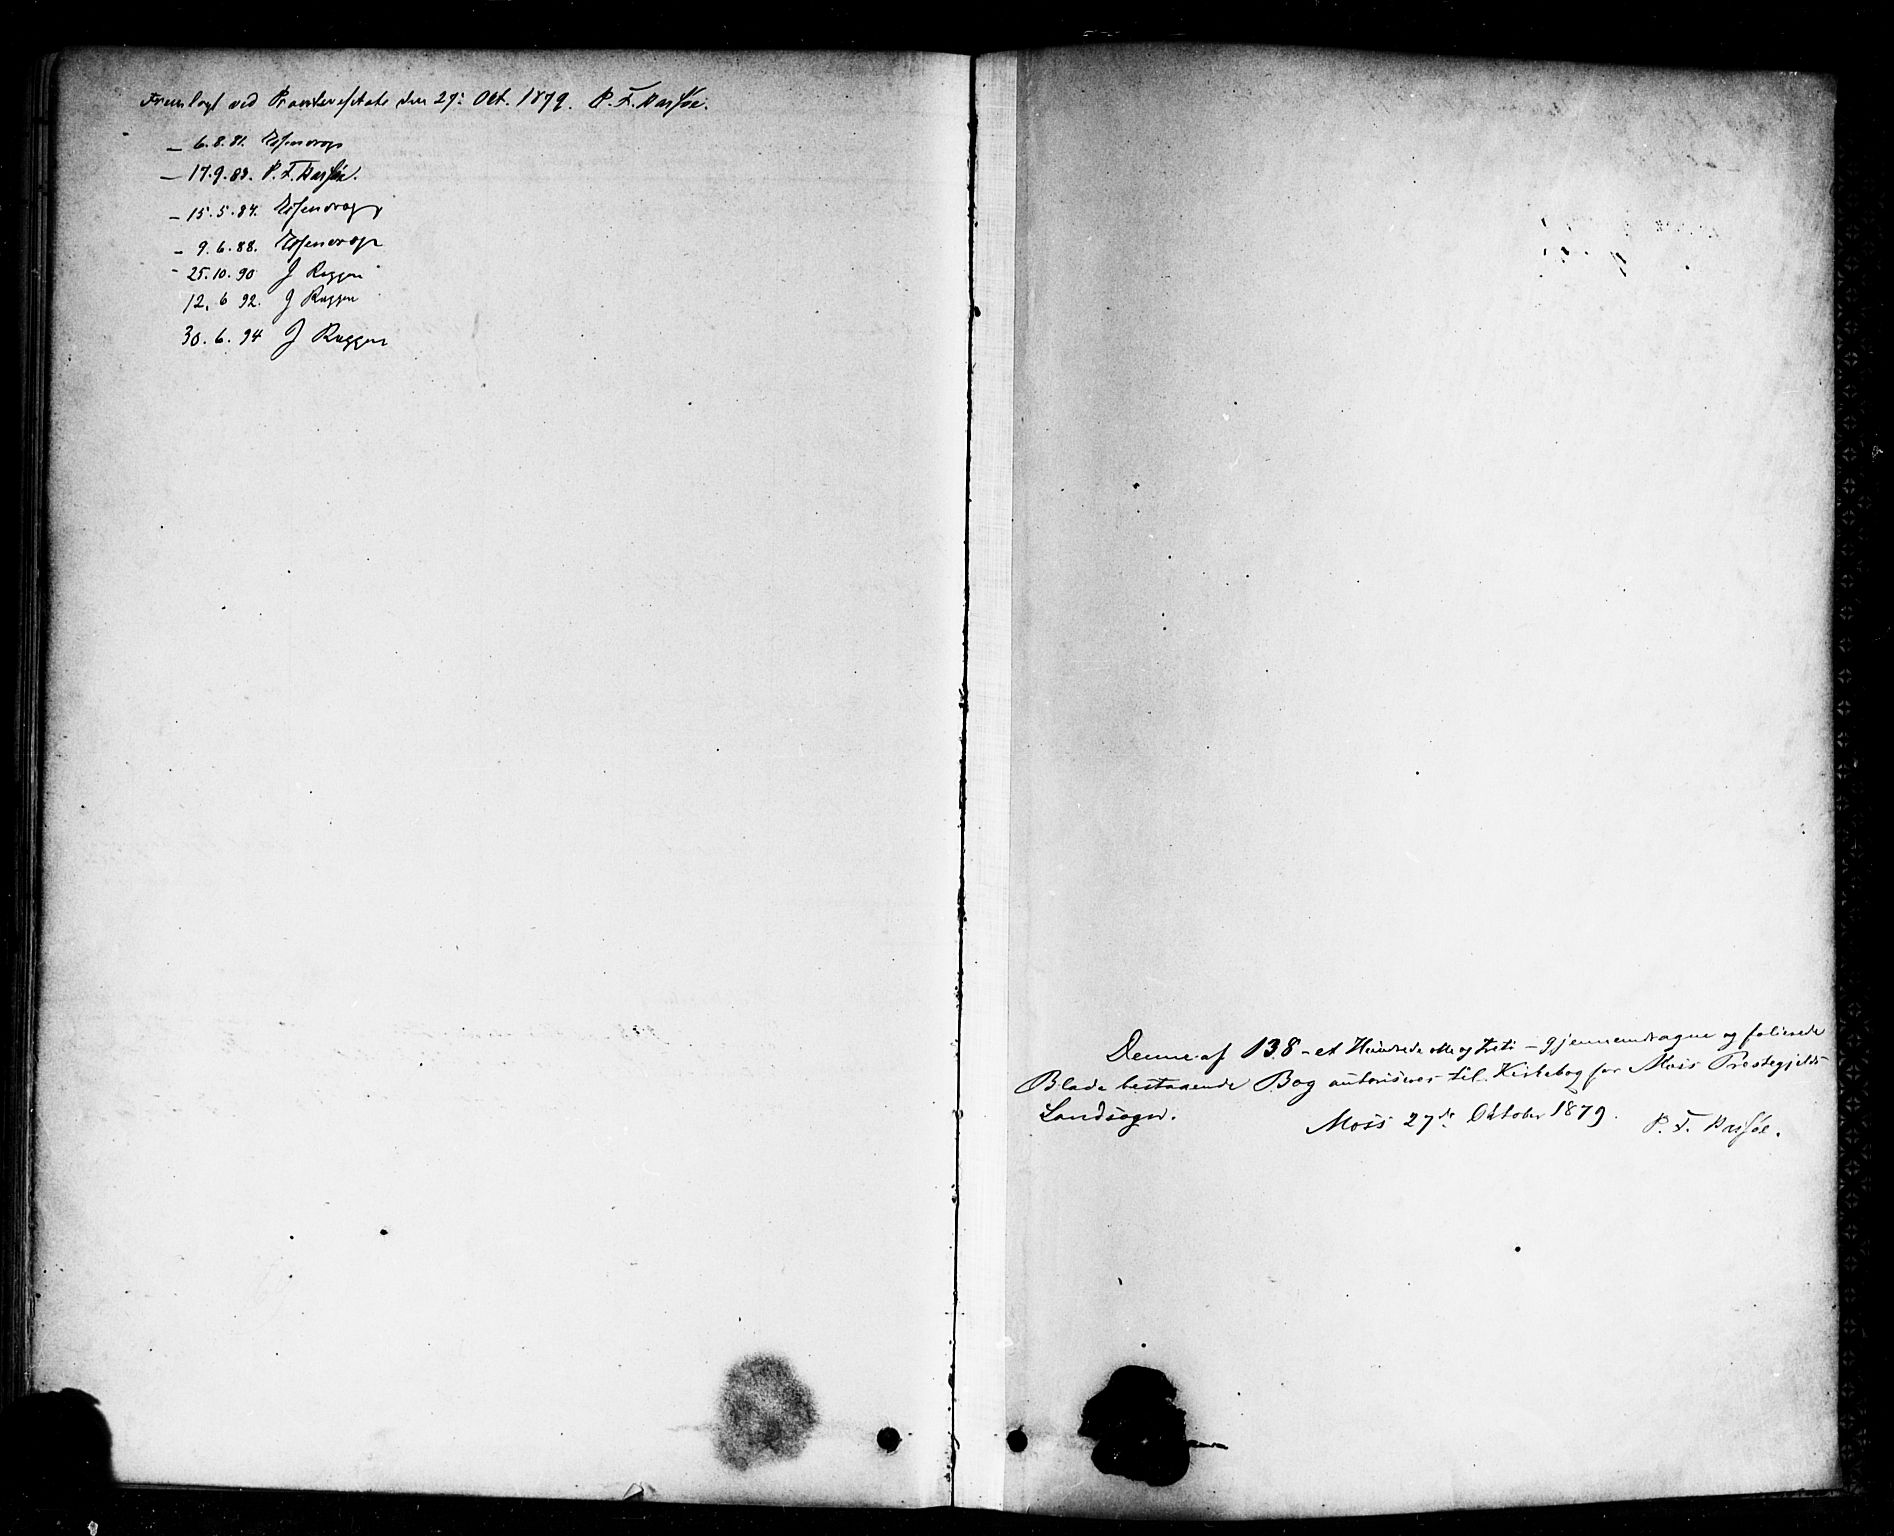 Fremlagt ved Provstevisitats den 27: Oct. 1879. P. F. Barføe.
– 6.8.81. Essendrop
– 17.9.83. P. F. Barføe.
– 15.5.84. Essendrop
– 9.6.88. Essendrop
– 25.10.90 J Raggen
12.6 92. J Raggen
30.6.94 J Raggen
Denne af 138 – et Hundrede otte og treti – gjennemdragne og folierede
Blade bestaaende Bog autoriseres til Kirkebog for Moss Prestegjelds
Landsogn.
Moss 27de Oktober 1879. P. F. Barføe.